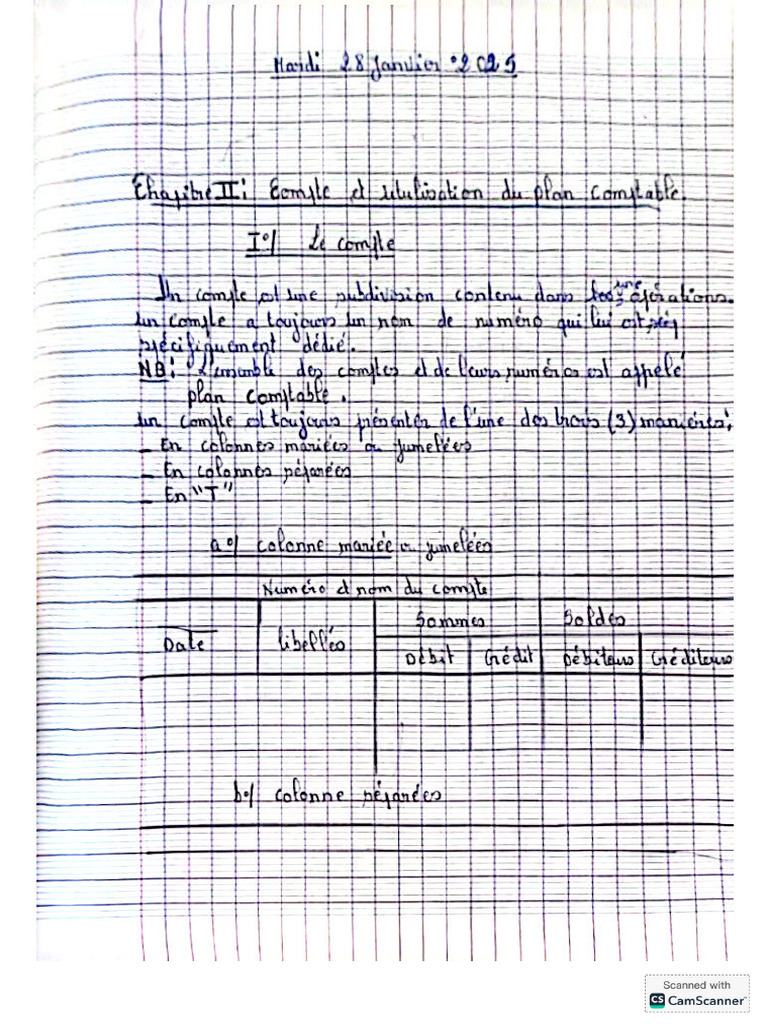 Mardi 28 Janvier 2025
Chapitre II: Compte et utulisation du plan Comptable.
I°/ Le compte
Un compte est une subdivision contenu dans une opérations.
un compte a toujours un nom de numéro qui lui est
précifiquement dédié.
NB: L'ensemble des comptes et de leurs numéros est appelé
plan Comptable.
un compte est toujours présenter de l'une des trois (3) manières:
_ En colonnes mariées ou jumelées
_ En colonnes péparées
_ En "T"
a°/ colonne mariée ou jumelées
Numéro et nom du compte
Date Libellés Sommes Soldes
Débit Crédit Débiteurs Créditeurs
b°/ colonne péparées
Scanned with
CS CamScanner